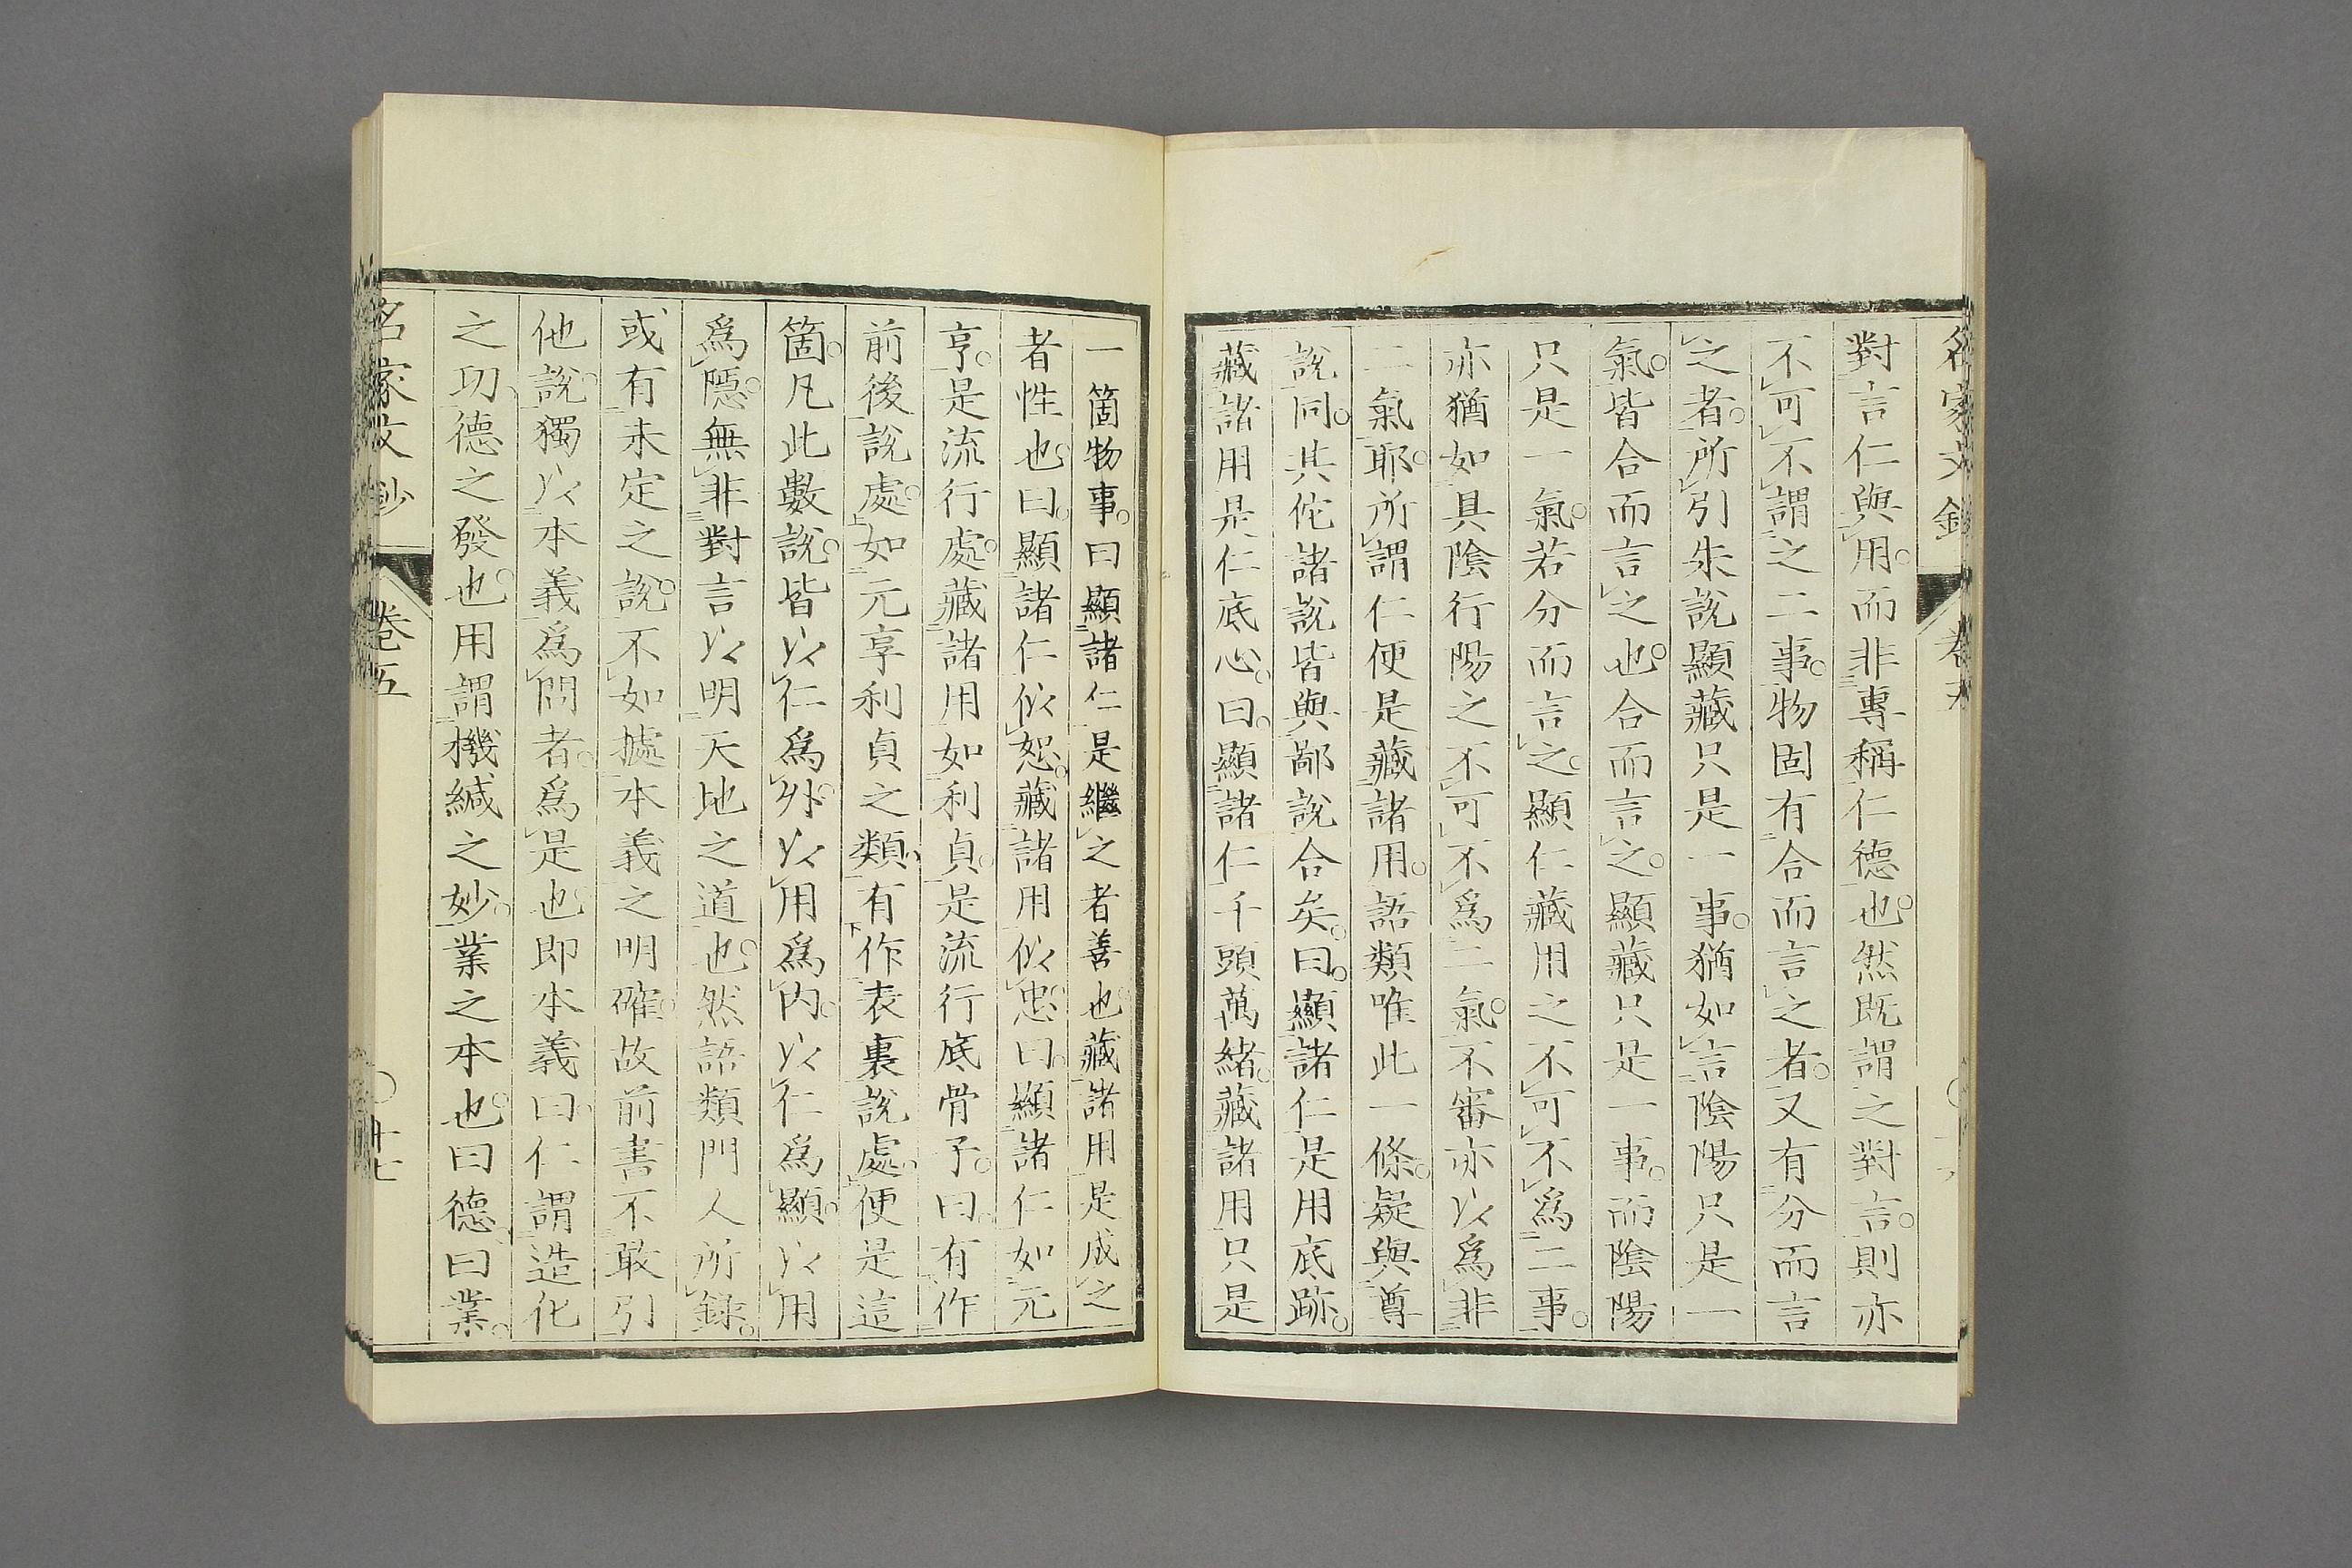 名家文鈔 卷五
對言仁與用。而非專稱仁德也。然既謂之對言。則亦
不可不謂之二事。物固有合而言之者。又有分而言
之者。所引朱說顯藏只是一事。猶如言陰陽只是一
氣。皆合而言之也。合而言之。顯藏只是一事。而陰陽
只是一氣。若分而言之。顯仁藏用之不可不爲二事。
亦猶如具陰行陽之不可不爲二氣。不審亦以爲非
二氣耶。所謂仁便是藏諸用。語類唯此一條。疑與尊
說同。其佗諸說皆與鄙說合矣。曰。顯諸仁是用底跡。
藏諸用是仁底心。曰。顯諸仁千頭萬緒。藏諸用只是
一箇物事。曰顯諸仁是繼之者善也。藏諸用是成之
者性也。曰。顯諸仁似恕。藏諸用似忠。曰。顯諸仁如元
亨。是流行處。藏諸用如利貞。是流行底骨子。曰。有作
前後說處。如元亨利貞之類。有作表裏說處。便是這
箇。凡此數說。皆以仁爲外。以用爲內。以仁爲顯。以用
爲隱。無非對言以明天地之道也。然語類門人所錄。
或有未定之說。不如據本義之明確。故前書不敢引
他說。獨以本義爲問者。爲是也。即本義曰。仁謂造化
之功。德之發也。用謂機緘之妙。業之本也。曰德曰業。
名家文鈔 卷五 〇十七